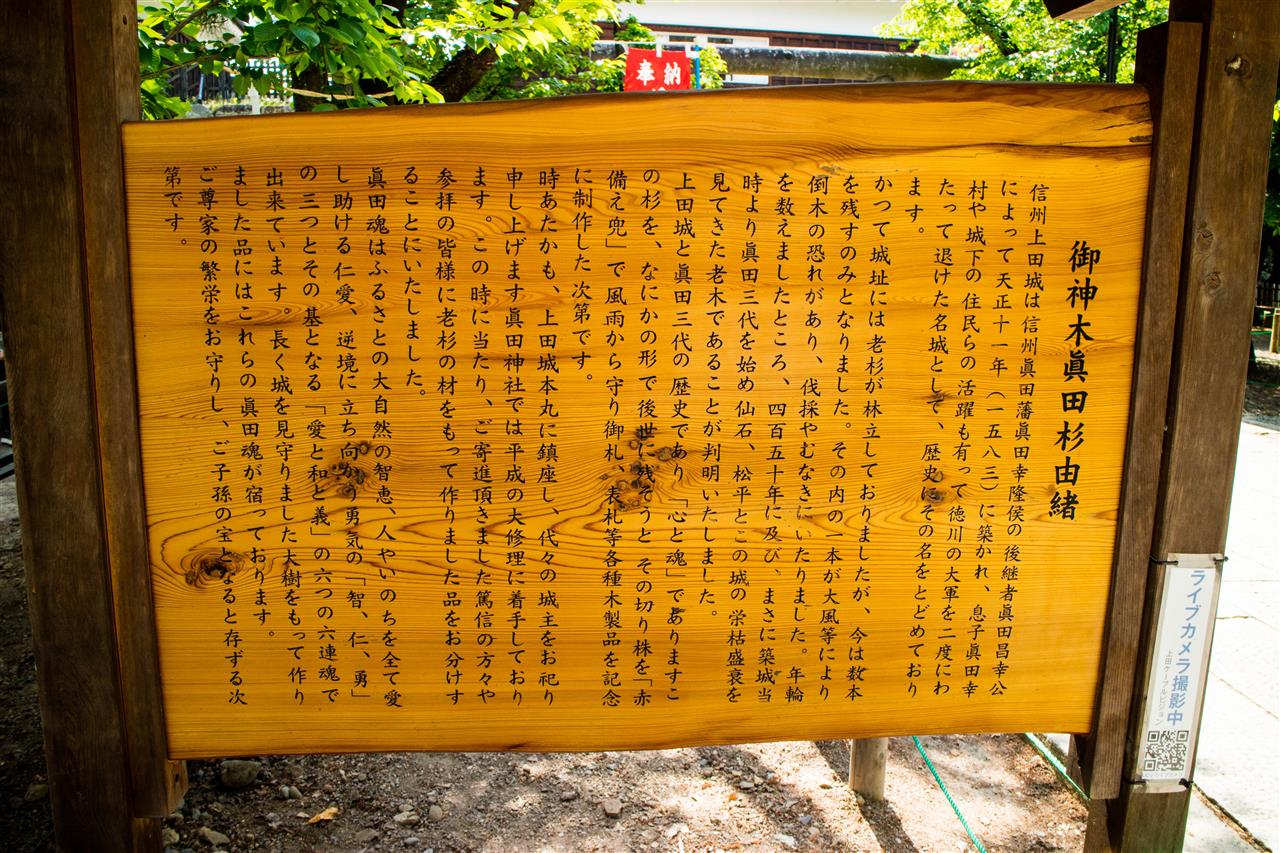 御神木眞田杉由緒
信州上田城は信州眞田藩眞田幸隆侯の後継者眞田昌幸公
によって天正十一年（一五八三）に築かれ、息子眞田幸
村や城下の住民らの活躍も有って徳川の大軍を二度にわ
たって退けた名城として、歴史にその名をとどめており
ます。
かつて城址には老杉が林立しておりましたが、今は数本
を残すのみとなりました。その内の一本が大風等により
倒木の恐れがあり、伐採やむなきにいたりました。年輪
を数えましたところ、四百五十年に及び、まさに築城当
時より眞田三代を始め仙石、松平とこの城の栄枯盛衰を
見てきた老木であることが判明いたしました。
上田城と眞田三代の歴史であり「心と魂」でありますこ
の杉を、なにかの形で後世に残そうと その切り株を「赤
備え兜」で風雨から守り御札、表札等各種木製品を記念
に制作した次第です。
時あたかも、上田城本丸に鎮座し、代々の城主をお祀り
申し上げます眞田神社では平成の大修理に着手しており
ます。この時に当たり、ご寄進頂きました篤信の方々や
参拝の皆様に老杉の材をもって作りました品をお分けす
ることにいたしました。
眞田魂はふるさとの大自然の智恵、人やいのちを全て愛
し助ける仁愛、逆境に立ち向かう勇気の「智、仁、勇」
の三つとその基となる「愛と和と義」の六つの六連魂で
出来ています。長く城を見守りました大樹をもって作り
ました品にはこれらの眞田魂が宿っております。
ご尊家の繁栄をお守りし、ご子孫の宝となると存ずる次
第です。
奉納
ライブカメラ撮影中
上田ケーブルビジョン